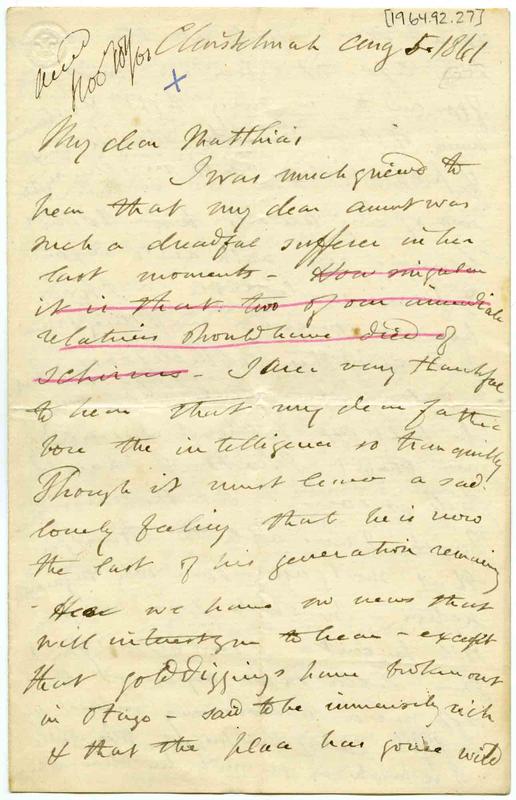 [1964.92.27]
recd
Nov 104/61
Christchurch Aug 5. 1861
My dear Matthias
I was much grieved to
hear that my dear aunt was
such a dreadful sufferer in her
last moments - How singular
it is that two of our immediate
relatives should have died of
schirrus - I am very thankful
to hear that my dear father
bore the intelligence so tranquilly
Though it must leave a sad
lonely feeling that he is now
the last of his generation remaining
- we have no news that
will interest you to hear - except
that gold diggings have broken out
in Otago - said to be immensely rich
& that the place has gone wild